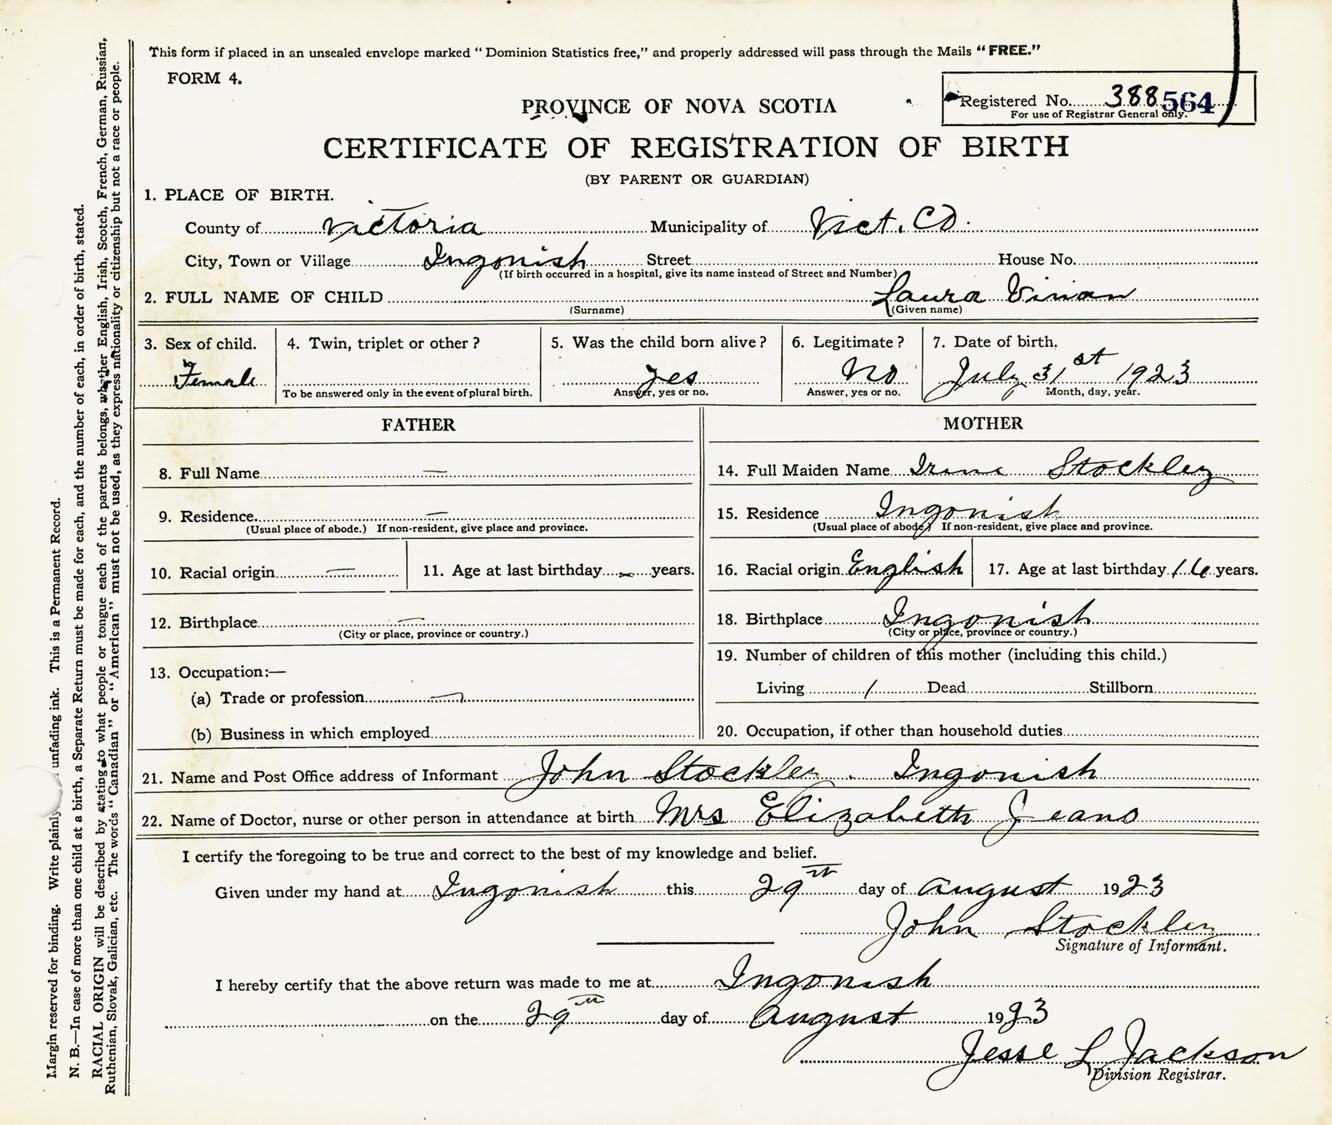 This form if placed in an unsealed envelope marked "Dominion Statistics free," and properly addressed will pass through the Mails "FREE."
FORM 4.
Registered No. 388 564
For use of Registrar General only.
PROVINCE OF NOVA SCOTIA
CERTIFICATE OF REGISTRATION OF BIRTH
(BY PARENT OR GUARDIAN)
1. PLACE OF BIRTH.
County of Victoria Municipality of Vict. CO.
City, Town or Village Ingonish Street House No.
(If birth occurred in a hospital, give its name instead of Street and Number)
2. FULL NAME OF CHILD Laura Vivian
(Surname) (Given name)
3. Sex of child. 4. Twin, triplet or other? 5. Was the child born alive? 6. Legitimate? 7. Date of birth.
Female yes No July 31st 1923
To be answered only in the event of plural birth. Answer, yes or no. Answer, yes or no. Month, day, year.
FATHER
8. Full Name —
9. Residence. —
(Usual place of abode.) If non-resident, give place and province.
10. Racial origin — 11. Age at last birthday — years.
12. Birthplace —
(City or place, province or country.)
13. Occupation:—
(a) Trade or profession —
(b) Business in which employed
MOTHER
14. Full Maiden Name Irene Stockley
15. Residence Ingonish
(Usual place of abode) If non-resident, give place and province.
16. Racial origin English 17. Age at last birthday 16 years.
18. Birthplace Ingonish
(City or place, province or country.)
19. Number of children of this mother (including this child.)
Living 1 Dead Stillborn
20. Occupation, if other than household duties
21. Name and Post Office address of Informant John Stockley. Ingonish
22. Name of Doctor, nurse or other person in attendance at birth Mrs Elizabeth Jeans
I certify the foregoing to be true and correct to the best of my knowledge and belief.
Given under my hand at Ingonish this 29th day of August 1923
John Stockley
Signature of Informant.
I hereby certify that the above return was made to me at Ingonish
on the 29th day of August 1923
Jesse L Jackson
Division Registrar.
Margin reserved for binding. Write plainly unfading ink. This is a Permanent Record.
N. B.—In case of more than one child at a birth, a Separate Return must be made for each, and the number of each, in order of birth, stated.
RACIAL ORIGIN will be described by stating to what people or tongue each of the parents belongs, whether English, Irish, Scotch, French, German, Russian,
Ruthenian, Slovak, Galician, etc. The words "Canadian" or "American" must not be used, as they express nationality or citizenship but not a race or people.